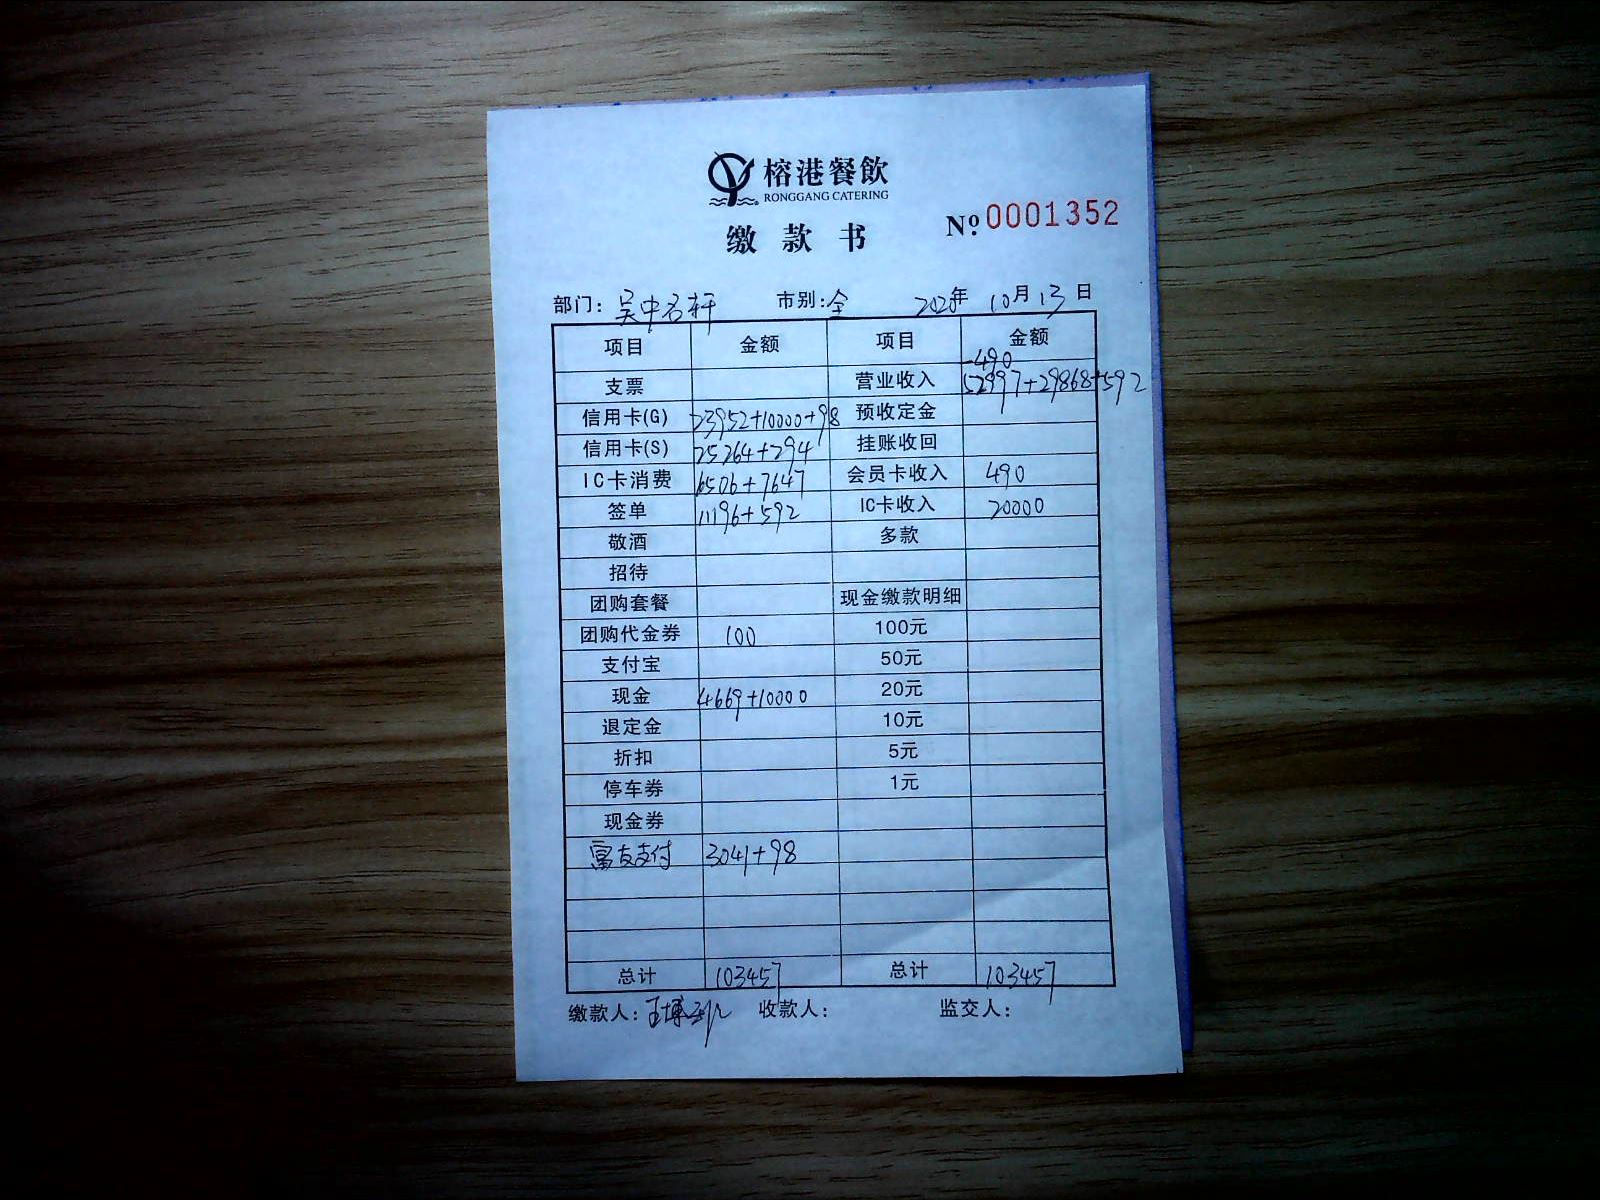 榕港餐飲
RONGGANG CATERING
缴款书 № 0001352
部门: 吴中名轩 市别: 全 2020年 10月 13日
项目 金额 项目 金额
支票 营业收入 -490 52997+29868+592
信用卡(G) 23952+10000+98 预收定金
信用卡(S) 25264+294 挂账收回
IC卡消费 6506+7647 会员卡收入 490
签单 11196+592 IC卡收入 20000
敬酒 多款
招待
团购套餐 现金缴款明细
团购代金券 100 100元
支付宝 50元
现金 4669+10000 20元
退定金 10元
折扣 5元
停车券 1元
现金券
富友支付 3041+98
总计 103457 总计 103457
缴款人: 收款人: 监交人: